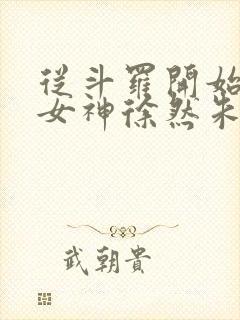 從斗羅開始
女神徐然朱
武朝貴